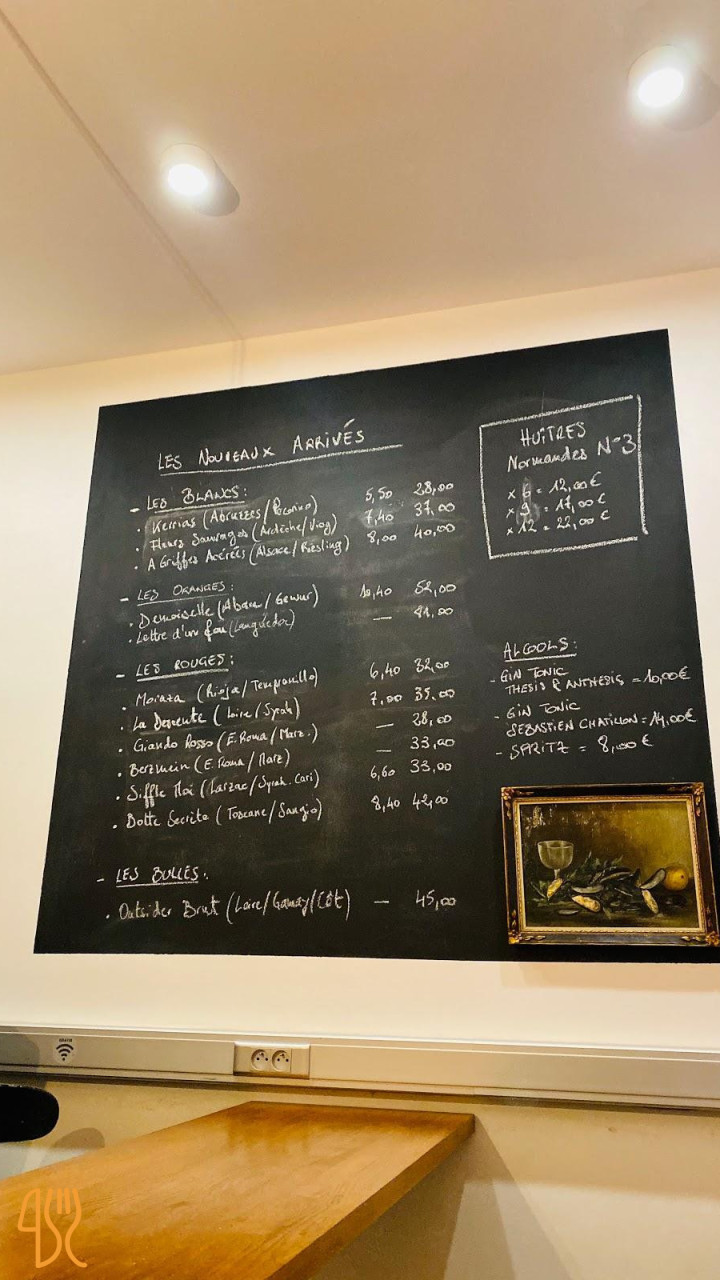 LES NOUVEAUX ARRIVÉS
- LES BLANCS:
. Kerrias (Abruzzes/Pecorino) 5,50 28,00
. Fleurs Sauvages (Ardèche/Viog) 7,40 37,00
. A Griffes Acérées (Alsace/Riesling) 8,00 40,00
- LES ORANGES:
. Demoiselle (Alsace/Gewur) 10,40 52,00
. Lettre d'un fou (Languedoc) — 81,00
- LES ROUGES:
. Moraza (Rioja/Tempranillo) 6,40 32,00
. La Descente (Loire/Syrah) 7,00 35,00
. Giando Rosso (E.Roma/Marz.) — 28,00
. (E.Roma/Marz) — 33,00
. Siffle Moi (Larzac/Syrah.Cari) 6,60 33,00
. Botte Secrète (Toscane/Sangio) 8,40 42,00
- LES BULLES.
. Outsider Brut (Loire/Gamay/Côt) — 45,00
HUÎTRES
Normandes N°3
x 6 = 12,00€
x 9 = 17,00€
x 12 = 22,00€
ALCOOLS:
- GIN TONIC
THESIS & ANTHESIS = 10,00€
- GIN TONIC
SEBASTIEN CHATILLON = 14,00€
- SPRITZ = 8,00€